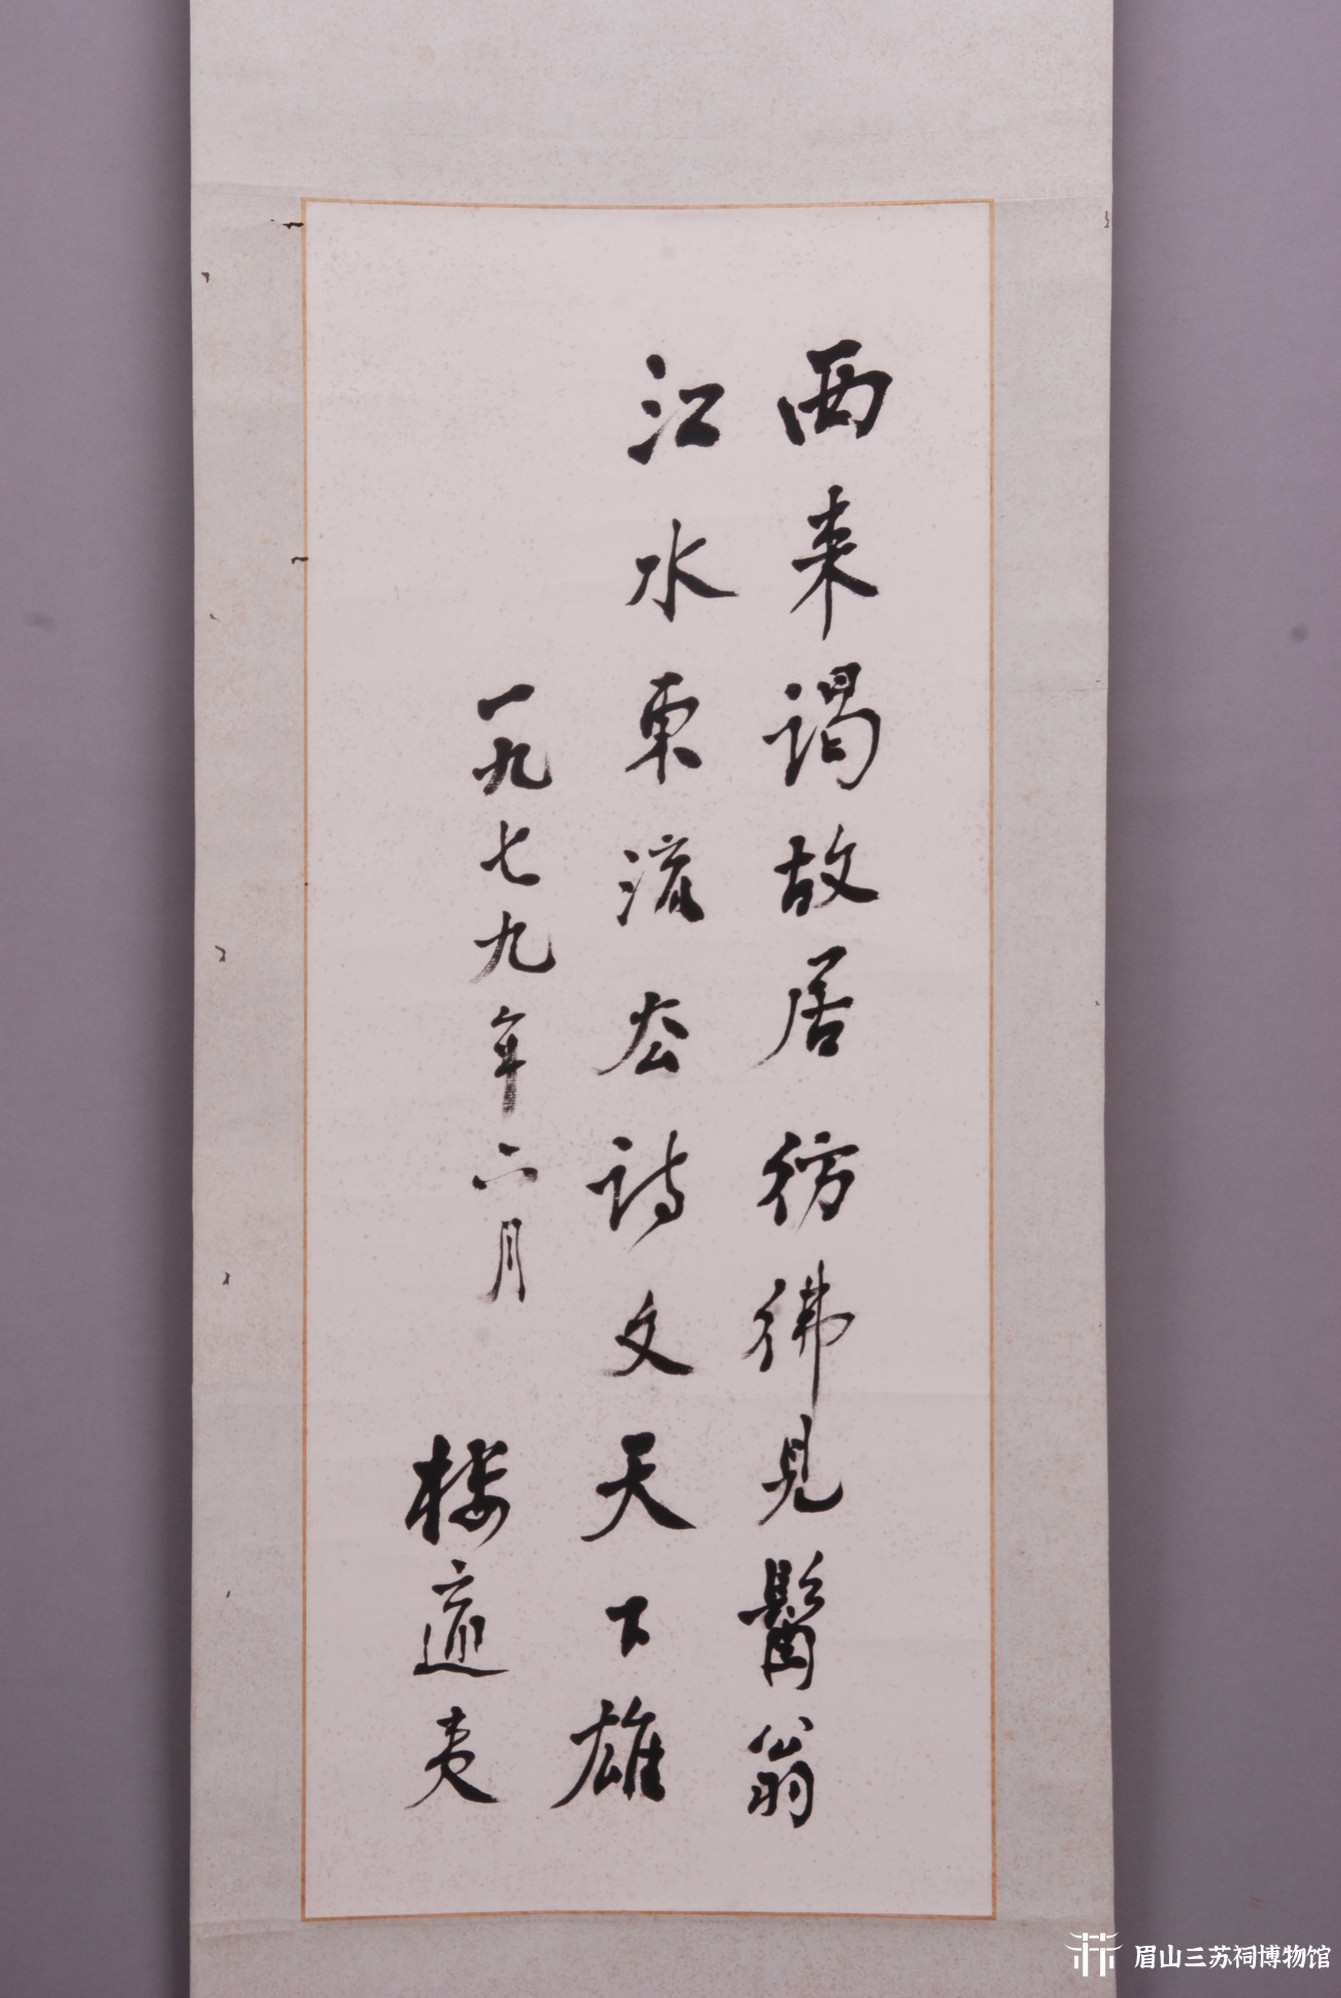 西来谒故居彷彿见髯翁
江水东流去诗文天下雄
一九七九年六月
楼适夷
眉山三苏祠博物馆